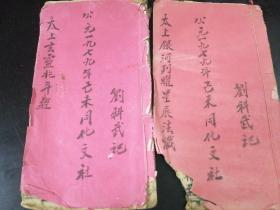 公元一九七九年己未同化文社
劉科武記
太上玄靈北斗經
公元一九七九年己未同化文社
劉科武記
太上銀河列耀星辰法懺